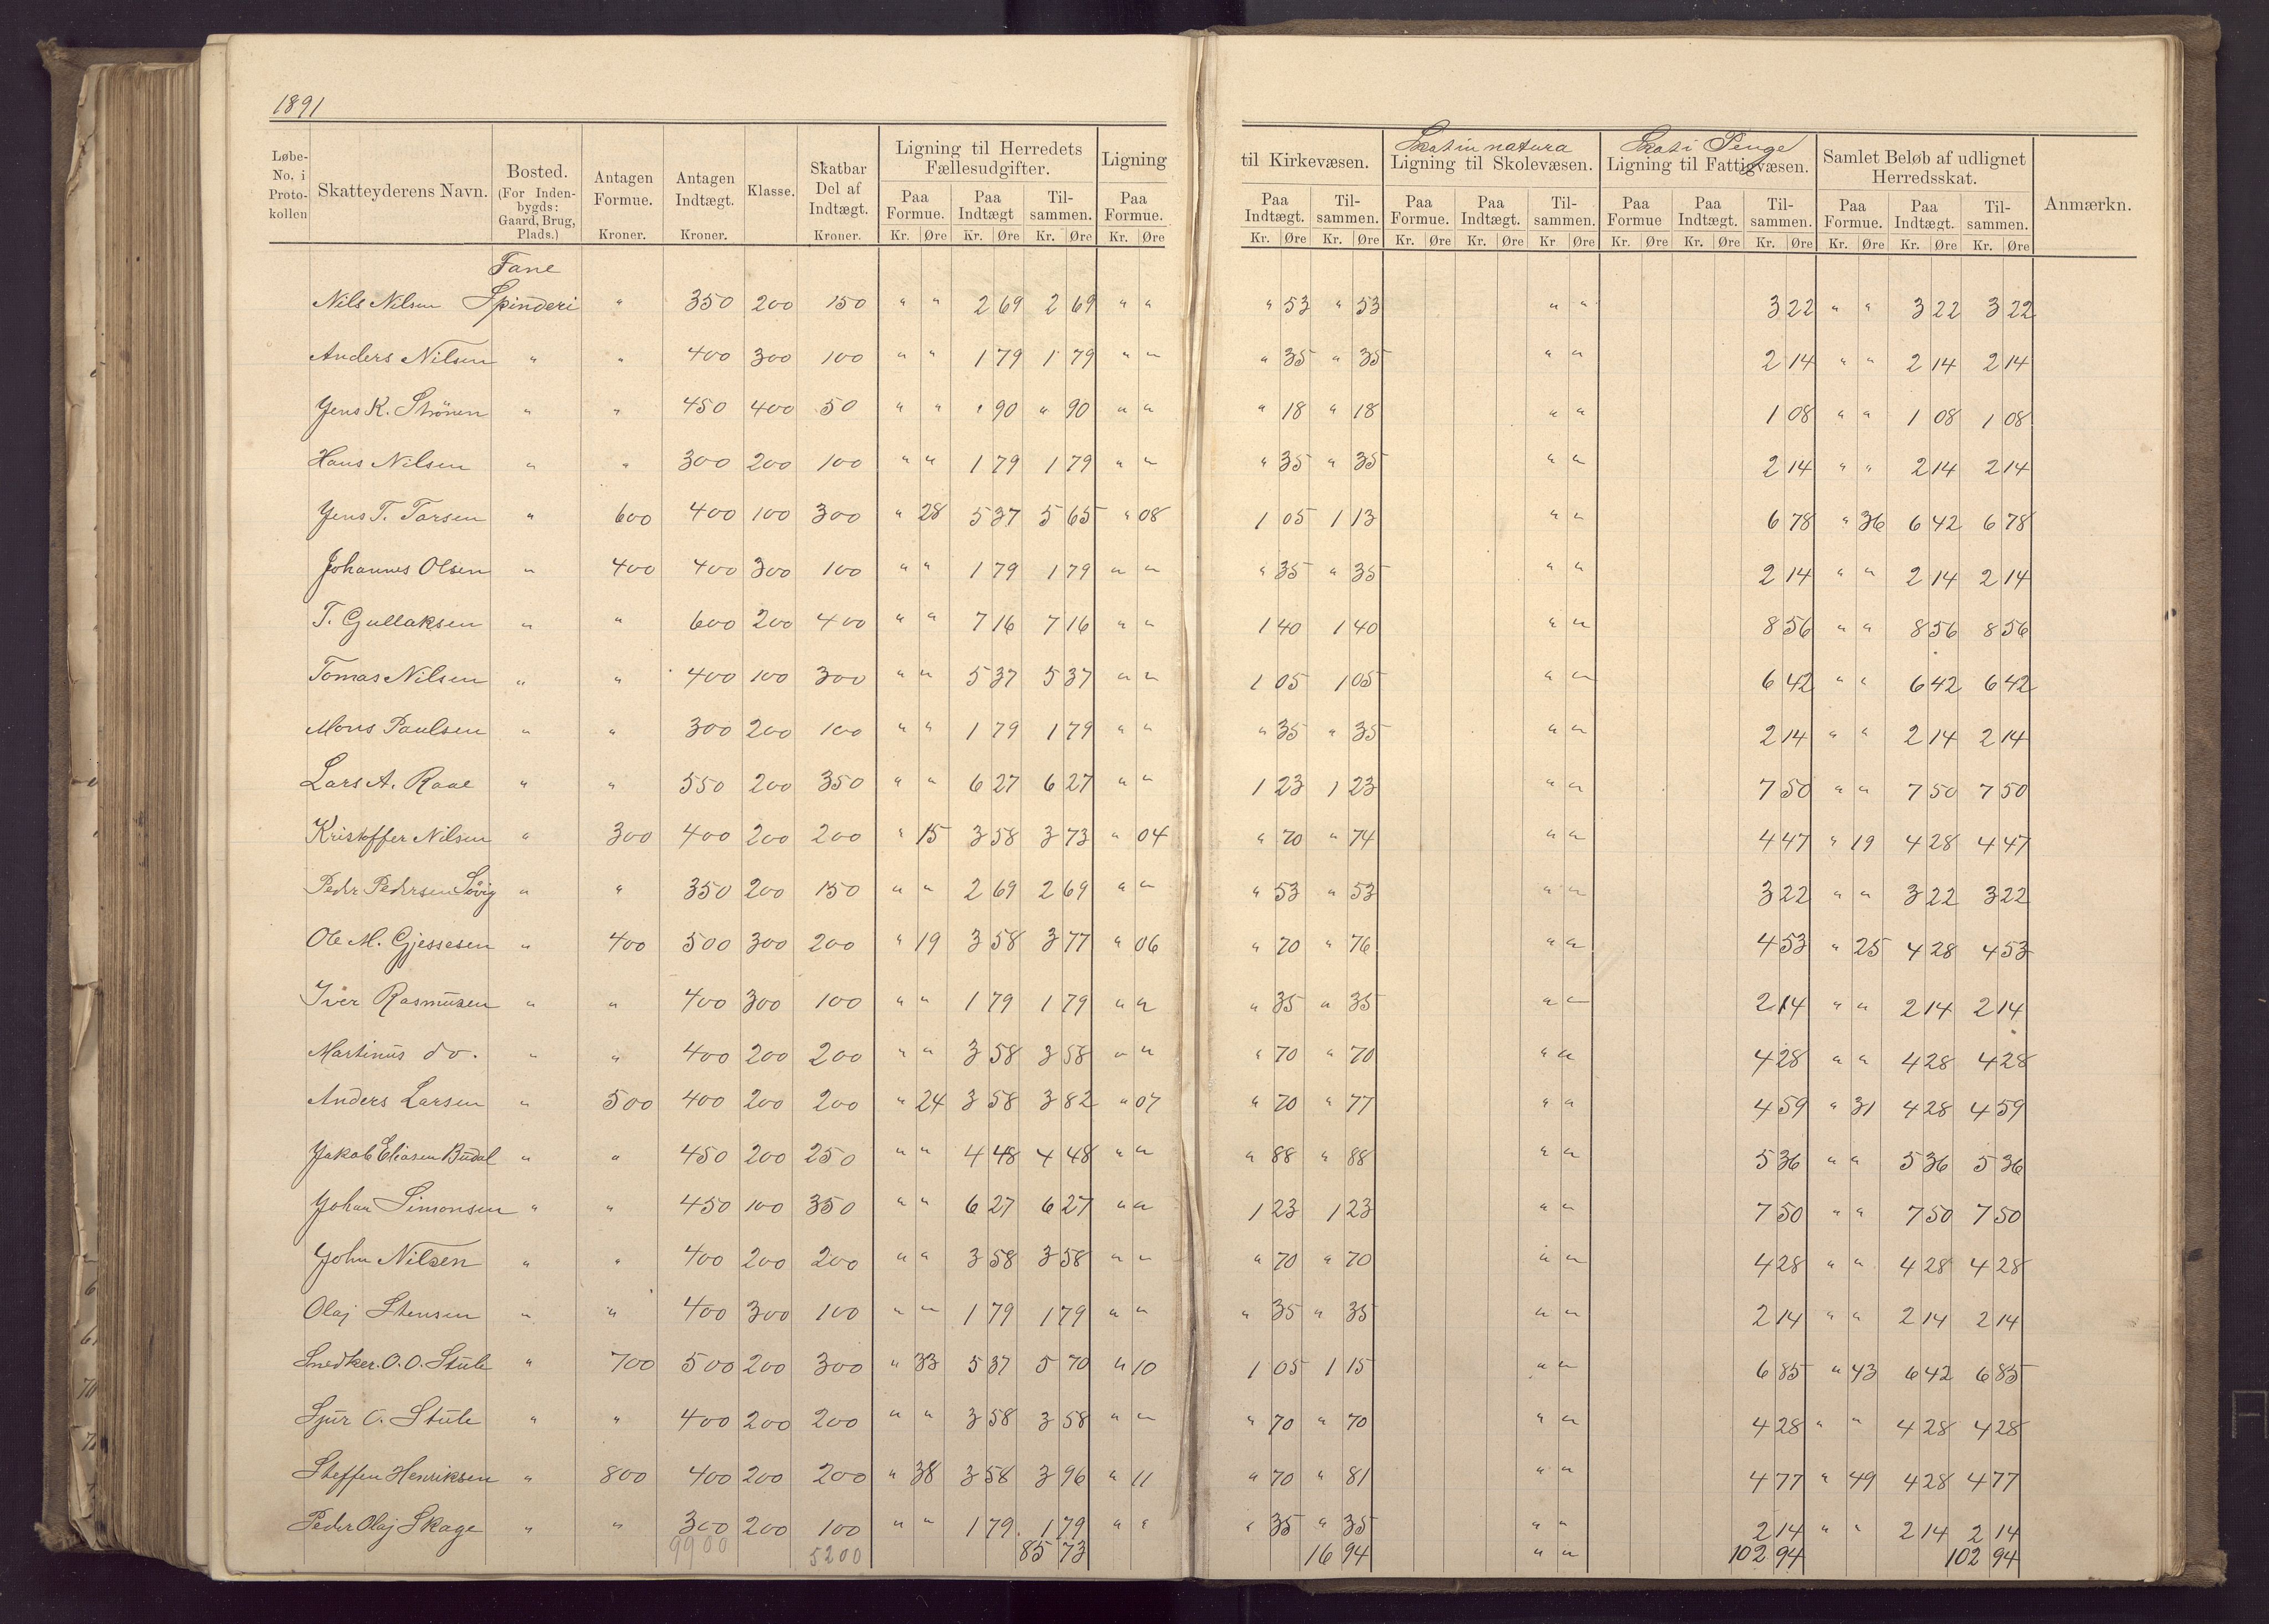 1891
Løbe-No. i Proto-kollen | Skatteyderens Navn. | Bosted. (For Inden-bygds: Gaard, Brug, Plads.) | Antagen Formue. Kroner. | Antagen Indtægt. Kroner. | Klasse. | Skatbar Del af Indtægt. Kroner. | Ligning til Herredets Fællesudgifter. Paa Formue. Kr. Øre | Paa Indtægt Kr. Øre | Til-sammen. Kr. Øre | Ligning Paa Formue. Kr. Øre | til Kirkevæsen. Paa Indtægt. Kr. Øre | Til-sammen. Kr. Øre | Skat in natura Ligning til Skolevæsen. Paa Formue. Kr. Øre | Paa Indtægt. Kr. Øre | Til-sammen. Kr Øre | Skat i Penge Ligning til Fattigvæsen. Paa Formue Kr. Øre | Paa Indtægt. Kr. Øre | Til-sammen. Kr. Øre | Samlet Beløb af udlignet Herredsskat. Paa Formue. Kr. Øre | Paa Indtægt. Kr. Øre | Til-sammen. Kr. Øre | Anmærkn.
Fane
Nils Nilsen Spinderi " 350 200 150 " " 2 69 2 69 " " " 53 " 53 " " 3 22 " " 3 22 3 22
Anders Nilsen " " 400 300 100 " " 1 79 1 79 " " " 35 " 35 " " 2 14 " " 2 14 2 14
Jens K. Strönen " " 450 400 50 " " " 90 " 90 " " " 18 " 18 " " 1 08 " " 1 08 1 08
Hans Nilsen " " 300 200 100 " " 1 79 1 79 " " " 35 " 35 " " 2 14 " " 2 14 2 14
Jens T. Torsen " 600 400 100 300 " 28 5 37 5 65 " 08 1 05 1 13 " " 6 78 " 36 6 42 6 78
Johannes Olsen " 400 400 300 100 " " 1 79 1 79 " " " 35 " 35 " " 2 14 " " 2 14 2 14
T. Gullaksen " " 600 200 400 " " 7 16 7 16 " " 1 40 1 40 " " 8 56 " " 8 56 8 56
Tomas Nilsen " " 400 100 300 " " 5 37 5 37 " " 1 05 1 05 " " 6 42 " " 6 42 6 42
Mons Paulsen " " 300 200 100 " " 1 79 1 79 " " " 35 " 35 " " 2 14 " " 2 14 2 14
Lars A. Raae " " 550 200 350 " " 6 27 6 27 " " 1 23 1 23 " " 7 50 " " 7 50 7 50
Kristoffer Nilsen " 300 400 200 200 " 15 3 58 3 73 " 04 " 70 " 74 " " 4 47 " 19 4 28 4 47
Peder Pedersen Sövig " " 350 200 150 " " 2 69 2 69 " " " 53 " 53 " " 3 22 " " 3 22 3 22
Ole M. Gjessesen " 400 500 300 200 " 19 3 58 3 77 " 06 " 70 " 76 " " 4 53 " 25 4 28 4 53
Iver Rasmusen " " 400 300 100 " " 1 79 1 79 " " " 35 " 35 " " 2 14 " " 2 14 2 14
Martinus do. " " 400 200 200 " " 3 58 3 58 " " " 70 " 70 " " 4 28 " " 4 28 4 28
Anders Larsen " 500 400 200 200 " 24 3 58 3 82 " 07 " 70 " 77 " " 4 59 " 31 4 28 4 59
Jakob Eliasen Budal " " 450 200 250 " " 4 48 4 48 " " " 88 " 88 " " 5 36 " " 5 36 5 36
Johan Simonsen " " 450 100 350 " " 6 27 6 27 " " 1 23 1 23 " " 7 50 " " 7 50 7 50
John Nilsen " " 400 200 200 " " 3 58 3 58 " " " 70 " 70 " " 4 28 " " 4 28 4 28
Olaj Stensen " " 400 300 100 " " 1 79 1 79 " " " 35 " 35 " " 2 14 " " 2 14 2 14
Snedker. O. O. Stule " 700 500 200 300 " 33 5 37 5 70 " 10 1 05 1 15 " " 6 85 " 43 6 42 6 85
Sjur O. Stule " " 400 200 200 " " 3 58 3 58 " " " 70 " 70 " " 4 28 " " 4 28 4 28
Steffen Henriksen " 800 400 200 200 " 38 3 58 3 96 " 11 " 70 " 81 " " 4 77 " 49 4 28 4 77
Peder Olaj Skage " " 300 200 100 " " 1 79 1 79 " " " 35 " 35 " " 2 14 " " 2 14 2 14
9900 5200 85 73 16 94 " " 102 94 102 94